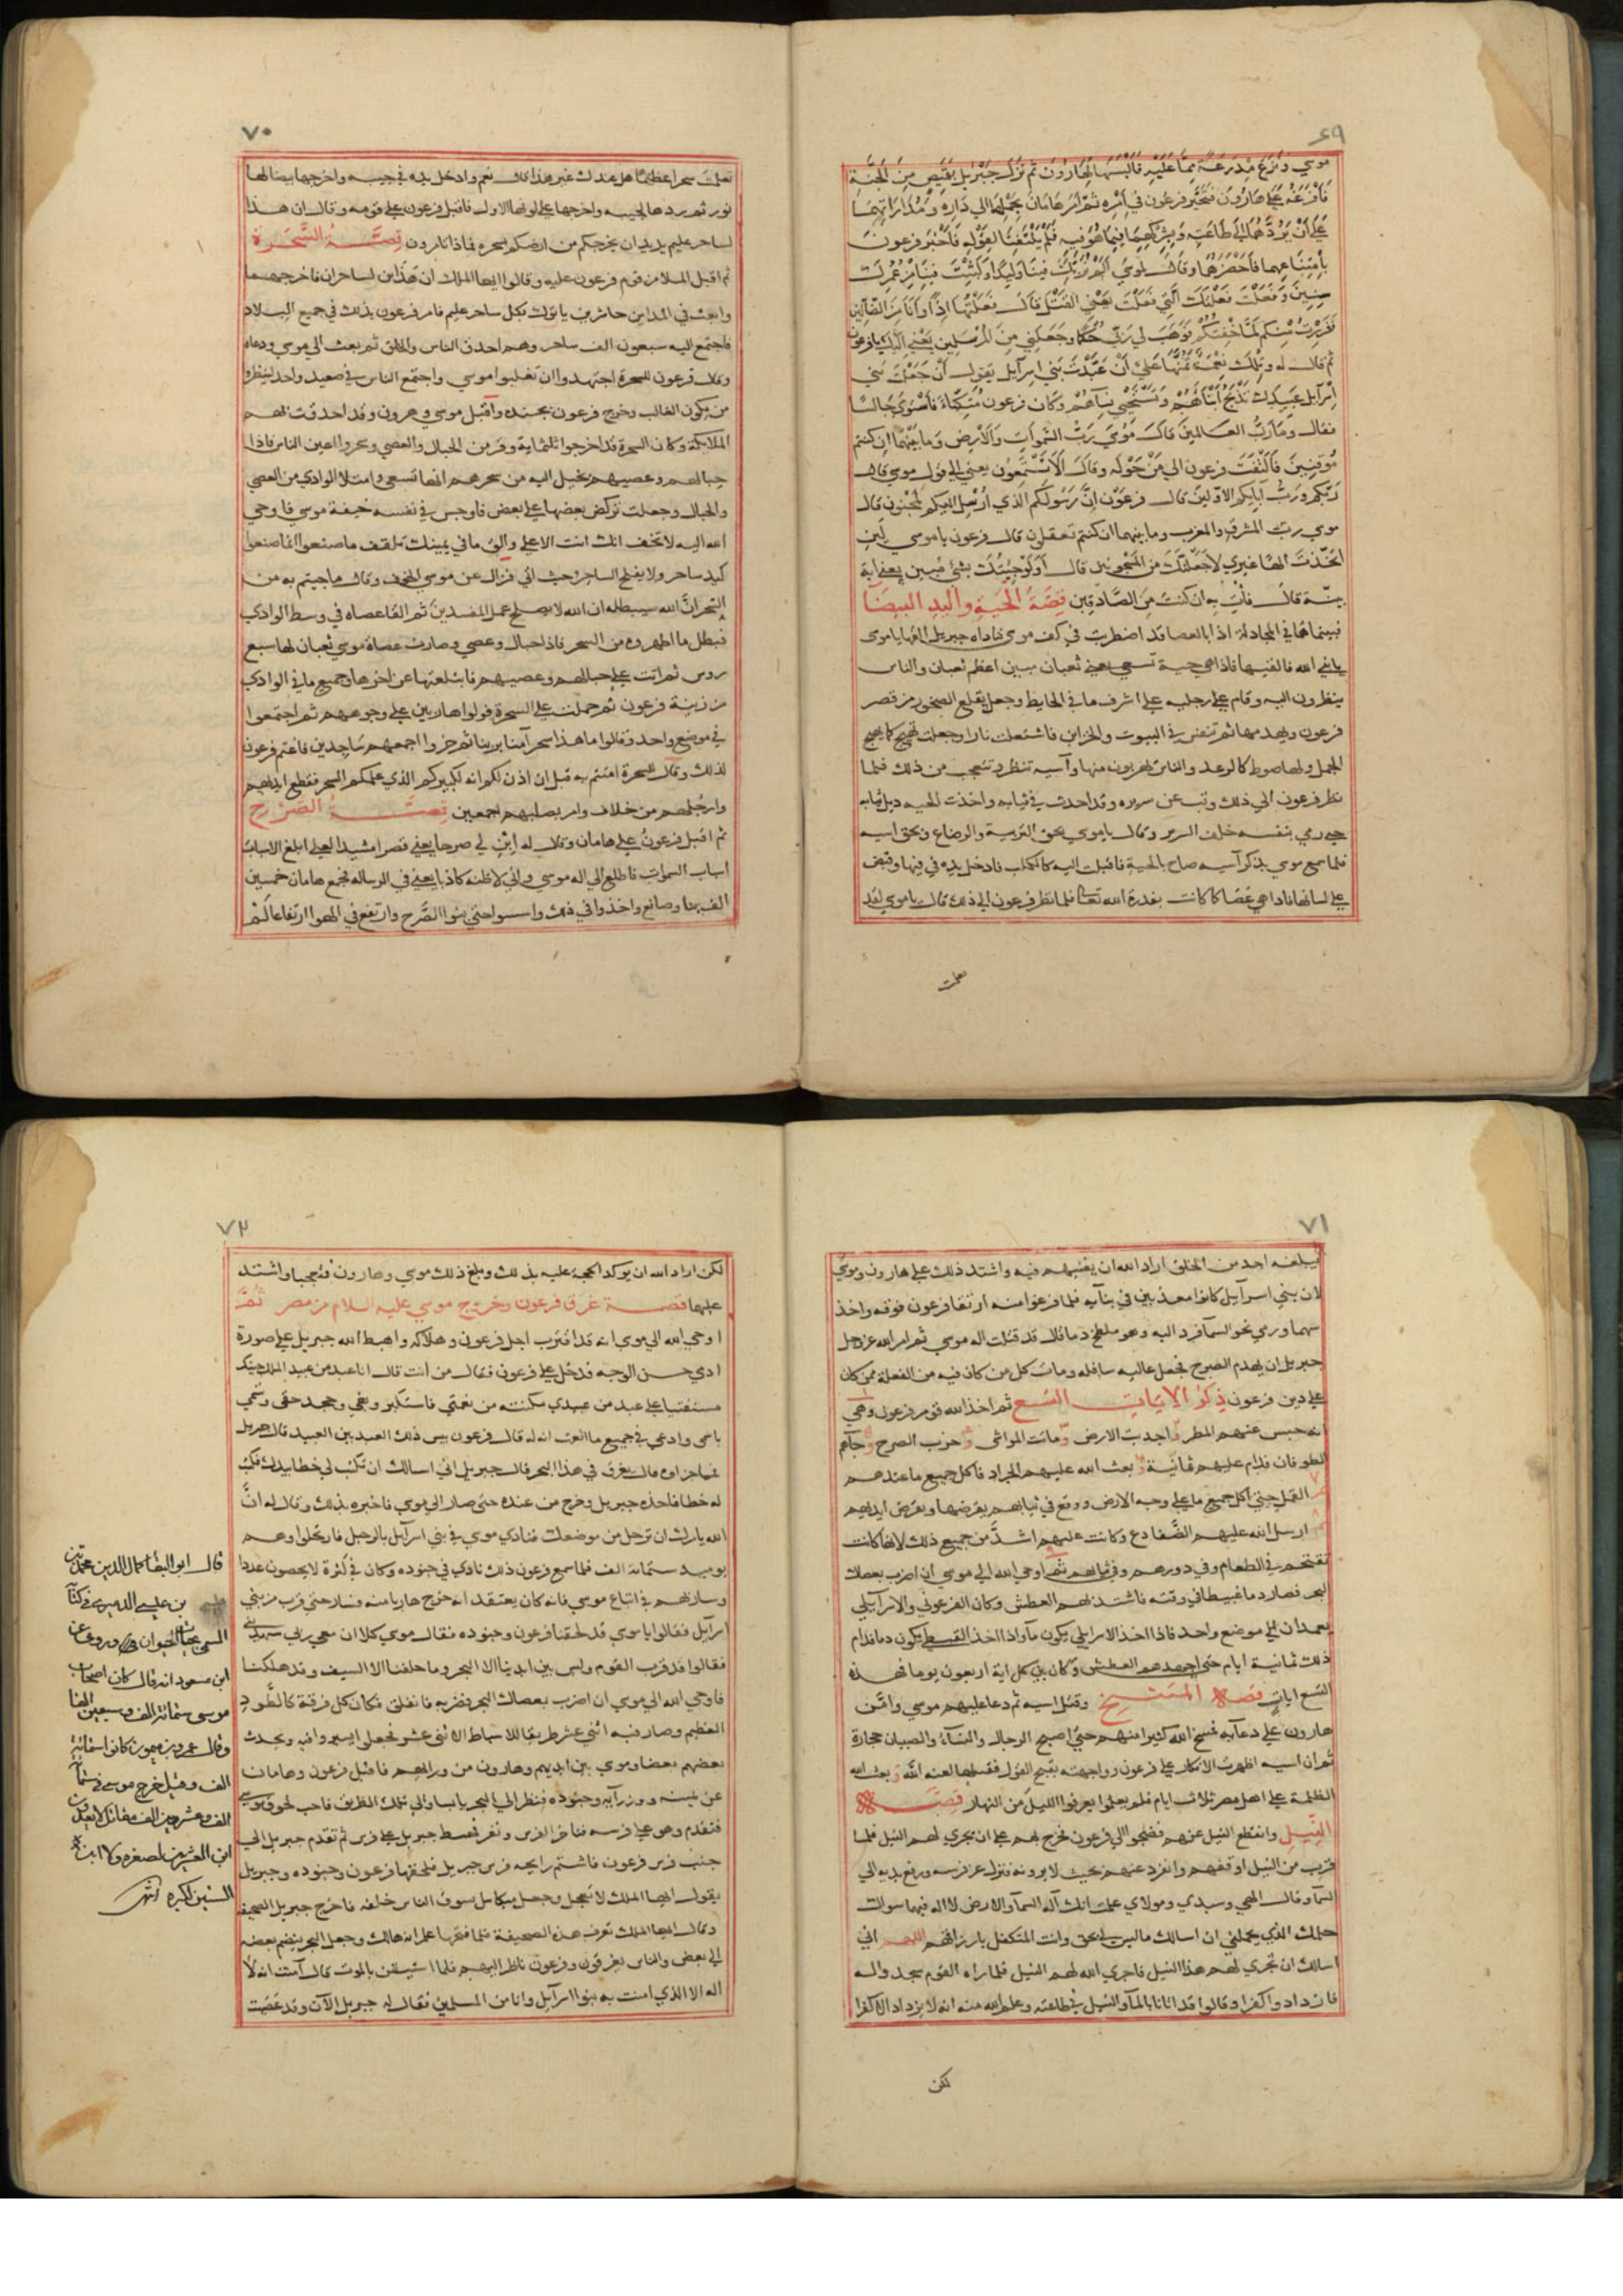 ٦٩
موسي ونزع مدرعة مما عليه فالبسها لهارون ثم نزل جبريل بقميص من الجنة
فافرغه علي هارون فتحير فرعون في امره ثم امر هامان بحملهما الي داره ومداراتهما
علي ان يردهما الي طاعته ويشركهما فيما هو فيه فلم يلتفتا لقوله فاخبر فرعون
بامتناعهما فاحضرهما وقال لموسي الم نربك فينا وليدا ولبثت فينا من عمرك
سنين وفعلت فعلتك التي فعلت يعني القتل قال فعلتها اذا وانا من الضالين
ففررت منكم لما خفتكم فوهب لي ربي حكما وجعلني من المرسلين يعني اليك يا فرعون
ثم قال له وتلك نعمة تمنها علي ان عبدت بني اسرآيل يقول ان جعلت بني
اسرآيل عبيدك تذبح ابنآءهم وتستحيي نسآءهم وكان فرعون متكئا فاستوي جالسا
فقال وما رب العالمين قال موسي رب السموات والارض وما بينهما ان كنتم
موقنين فالتفت فرعون الي من حوله وقال الا تستمعون يعني الي قول موسي قال
ربكم ورب آبايكم الاولين قال فرعون ان رسولكم الذي ارسل اليكم لمجنون قال
موسي رب المشرق والمغرب وما بينهما ان كنتم تعقلون قال فرعون يا موسي لين
اتخذت الها غيري لاجعلنك من المسجونين قال اولو جيتك بشئ مبين يعني اية
بينة قال فأت به ان كنت من الصادقين قصة الحية واليد البيضا
فبينما هما في المجادلة اذا بالعصا قد اضطربت في كف موسي فناداه جبريل القها يا موسي
يا نبي الله فالقيها فاذا هي حية تسعي يعني ثعبان مبين اعظم ثعبان والناس
ينظرون اليه وقام علي رجليه علي اشرف ما في الحايط وجعل يقلع الصخور من قصر
فرعون ويهدمها ثم تنفس في البيوت والخزاين فاشتعلت نارا وجعلت تهيج كما يهيج
الجمل ولها صوط كالرعد والناس يهربون منها وآسيه تنظر وتتعجب من ذلك فلما
نظر فرعون الي ذلك وثب عن سريره وقد احدث في ثيابه واخذت الحيه ذيل ثيابه
حتي رمي بنفسه خلف السرير وقال يا موسي بحق التربية والرضاع وبحق اسيه
فلما سمع موسي بذكر آسيه صاح بالحية فاقبلت اليه كالكلب فادخل يده في فيها وقبض
علي لسانها فاذا هي عصا كما كانت بقدرة الله تعالي فلما نظر فرعون الي ذلك قال يا موسي لقد
تعلمت
٧٠
تعلمت سحرا عظيما هل عندك غير هذا قال نعم وادخل يده في جيبه واخرجها بيضا لها
نور ثم ردها الي جيبه واخرجها علي لونها الاول فاقبل فرعون علي قومه وقال ان هذا
لساحر عليم يريد ان يخرجكم من ارضكم بسحره فماذا تامرون قصة السحرة
ثم اقبل الملا من قوم فرعون عليه وقالوا ايها الملك ان هذان لساحران فاخرجهما
وابعث في المداين حاشرين ياتوك بكل ساحر عليم فامر فرعون بذلك في جميع البلاد
فاجتمع اليه سبعون الف ساحر وهم احذق الناس والخلق ثم بعث الي موسي ودعاه
وقال فرعون للسحرة اجتهدوا ان تغلبوا موسي واجتمع الناس في صعيد واحد لينظروا
من يكون الغالب وخرج فرعون بجنده واقبل موسي وهرون وقد احدقت بهم
الملايكة وكان السحرة قد اخرجوا ثلثماية وقر من الحبال والعصي وسحروا اعين الناس فاذا
حبالهم وعصيهم يخيل اليه من سحرهم انها تسعي وامتلا الوادي من العصي
والحبال وجعلت تركض بعضها علي بعض فاوجس في نفسه خيفة موسي فاوحي
الله اليه لا تخف انك انت الاعلي والق ما في يمينك تلقف ما صنعوا انما صنعوا
كيد ساحر ولا يفلح الساحر حيث اتي فزال عن موسي الخوف وقال ما جيتم به من
السحر ان الله سيبطله ان الله لا يصلح عمل المفسدين ثم القا عصاه في وسط الوادي
فبطل ما اظهروه من السحر فاذا حبال وعصي وصارت عصاة موسي ثعبان لها سبع
روس ثم اتت علي حبالهم وعصيهم فابتلعتها عن اخرها وجميع ما في الوادي
من زينة فرعون ثم حملت علي السحرة فولوا هاربين علي وجوههم ثم اجتمعوا
في موضع واحد وقالوا ما هذا سحر آمنا بربنا ثم خروا اجمعهم ساجدين فاغتم فرعون
لذلك وقال للسحرة امنتم به قبل ان اذن لكم انه لكبيركم الذي علمكم السحر فقطع ايديهم
وارجلهم من خلاف وامر بصلبهم اجمعين قصة الصرح
ثم اقبل فرعون علي هامان وقال له ابن لي صرحا يعني قصرا مشيدا لعلي ابلغ الاسباب
اسباب السموات فاطلع الي اله موسي واني لاظنه كاذبا يعني في الرساله فجمع هامان خمسين
الف بنا وصانع واخذوا في ذلك واسسوا حتي بنوا الصرح وارتفع في الهوا ارتفاعا لم
٧١
يبلغه احد من الخلق اراد الله ان يفتنهم فيه واشتد ذلك علي هارون وموسي
لان بني اسرآيل كانوا معذبين في بنآيه فلما فرغوا منه ارتقا فرعون فوقه واخذ
سهما ورمي نحو السمآ فرد اليه وهو ملطخ دما فقال قد قتلت اله موسي ثم امر الله عز وجل
جبريل ان يهدم الصرح فجعل عاليه سافله ومات كل من كان فيه من الفعلة ممن كان
علي دين فرعون ذكر الايات التسع ثم اخذ الله قوم فرعون وهي
انه حبس عنهم المطر واجدبت الارض وماتت المواشي وخرب الصرح وجآهم
الطوفان فدام عليهم ثمانية وبعث الله عليهم الجراد فاكل جميع ما عندهم
القمل حتي اكل جميع ما علي وجه الارض ووقع في ثيابهم يقرضها ويقرض ابدانهم
ارسل الله عليهم الضفادع وكانت عليهم اشد من جميع ذلك لانها كانت
تقتحم في الطعام وفي دورهم وفي ثيابهم ثم اوحي الله الي موسي ان اضرب بعصاك
البحر فصار دما عبيطا في وقته فاشتد بهم العطش وكان الفرعوني والاسرآيلي
يعمدان الي موضع واحد فاذا اخذ الاسرايلي يكون مآ واذا اخذ القبطي يكون دما فدام
ذلك ثمانية ايام حتي اجهدهم العطش وكان بين كل اية اربعون يوما فهذه
التسع ايات قصة المسخ وقتل اسيه ثم دعا عليهم موسي وامّن
هارون علي دعآيه فمسخ الله كثيرا منهم حتي اصبح الرجال والنسآء والصبيان حجارة
ثم ان اسيه اظهرت الانكار علي فرعون وواجهته بقبيح القول فقتلها لعنه الله وبعث الله
الظلمة علي اهل مصر ثلاث ايام فلم يعلموا يعرفوا الليل من النهار قصة
النيل وانقطع النيل عنهم فضجوا الي فرعون فخرج بهم علي ان يجري لهم النيل فلما
قرب من النيل اوقفهم وانفرد عنهم بحيث لا يرونه فنزل عن فرسه ورفع يديه الي
السمآ وقال الهي وسيدي ومولاي علمت انك آله السمآ والارض لا اله فيهما سواك
حلمك الذي يحملني ان اسالك ما ليس لي بحق وانت المتكفل بارزاقهم اللهم اني
اسالك ان تجري لهم هذا النيل فاجري الله لهم النيل فلما راه القوم سجدوا له
فازدادوا كفرا وقالوا قد اتانا بالمآ والنيل في طاعته وعلم الله منه انه لا يزداد الا كفرا
لكن
٧٢
لكن اراد الله ان يوكد الحجة عليه بذلك وبلغ ذلك موسي وهارون فتعجبا واشتد
عليهما قصة غرق فرعون وخروج موسي عليه السلام من مصر ثم
اوحي الله الي موسي انه قد اقترب اجل فرعون وهلاكه واهبط الله جبريل علي صورة
ادمي حسن الوجه فدخل علي فرعون فقال من انت قال انا عبد من عبيد الملك جيتك
مستفتيا علي عبد من عبيدي مكنته من نعمتي فاستكبر وبغي وجحد حقي وتسمي
باسمي وادعي في جميع ما انعمت انه له قال فرعون بيس ذلك العبد بين العبيد قال جبريل
فما جزاوه قال يغرق في هذا البحر قال جبريل اني اسالك ان تكتب لي خطا بيدك فكتب
له خطا فاخذه جبريل وخرج من عنده حتي صار الي موسي فاخبره بذلك وقال له ان
الله يامرك ان ترحل من موضعك فنادي موسي في بني اسرآيل بالرحيل فارتحلوا وهم
يوميذ ستماية الف فلما سمع فرعون ذلك نادي في جنوده وكان في كثرة لا يحصون عددا
وسار بهم في اتباع موسي فانه كان يعتقد انه خرج هاربا منه وسار حتي قرب من بني
اسرآيل فقالوا يا موسي قد لحقنا فرعون وجنوده فقال موسي كلا ان معي ربي سيهديني
فقالوا قد قرب القوم وليس بين ايدينا الا البحر وما خلفنا الا السيف وقد هلكنا
فاوحي الله الي موسي ان اضرب بعصاك البحر فضربه فانفلق فكان كل فرقة كالطود
العظيم وصار فيه اثني عشر طريقا للاسباط الاثني عشر فجعلوا يسيروا فيه ويحدث
بعضهم بعضا وموسي بين ايديهم وهارون من ورآيهم فاقبل فرعون وهامان
عن يمينه ووزرآيه وجنوده فنظر الي البحر يابسا والي تلك الطرق فاحب لحوق موسي
فتقدم وهو علي فرسه فنافر الفرس ونفر فهبط جبريل علي فرس ثم تقدم جبريل الي
جنب فرس فرعون فاشتم رايحة فرس جبريل فلحقها فرعون وجنوده وجبريل
يقول ايها الملك لا تعجل وجعل ميكاييل يسوق الناس خلفه فاخرج جبريل الصحيفة
وقال ايها الملك تعرف هذه الصحيفة فلما فتحها علم انه هالك وجعل البحر ينضم بعضه
الي بعض والناس يغرقون وفرعون ناظر اليهم فلما استيقن بالموت قال آمنت انه لا
اله الا الذي امنت به بنوا اسرآيل وانا من المسلمين فقال له جبريل الآن وقد عصيت
قال ابو البقا كمال الدين محمد بن
بن عيسي الدميري في كتآ
المسمي بحياة الحيوان وروي عن
ابن مسعود انه قال كان اصحاب
موسى ستمائة الف وسبعين الفا
وقال عمرو بن ميمون كانوا ستمائة
الف وقيل خرج موسي في ستمآئة
الف وعشرين الف مقاتل لا يعدون
ابن العشرين لصغره ولا ابن
الستين لكبره انتهى